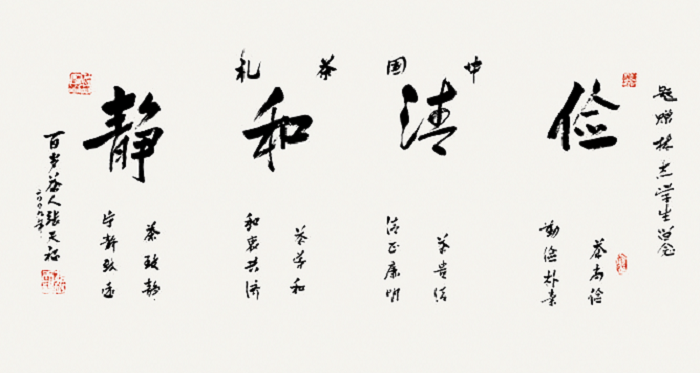 中国茶礼
题赠志学生留念
俭
茶尚俭
勤俭朴素
清
茶贵清
清正廉明
和
茶导和
和衷共济
静
茶致静
宁静致远
百岁茶人张天福
二〇〇九年